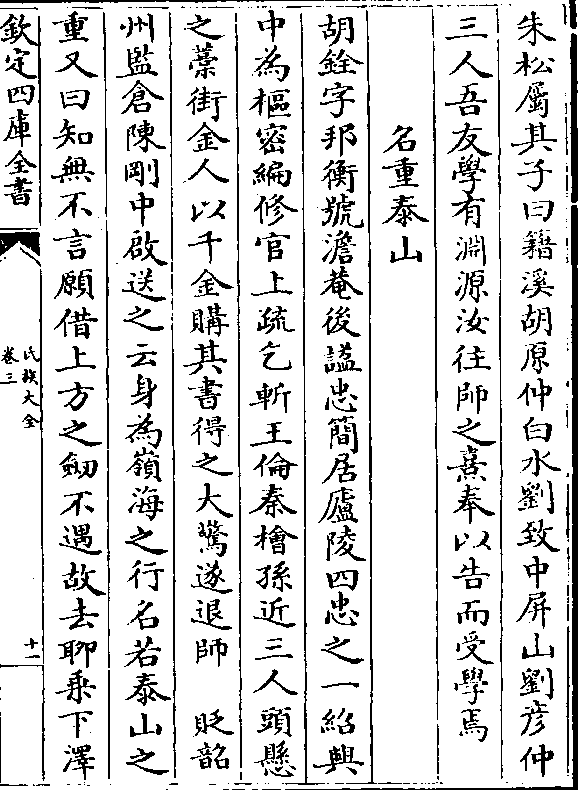 朱松屬其子曰籍溪胡原仲白水劉致中屏山劉彦仲
三人吾友學有淵源汝往師之熹奉以告而受學焉
名重泰山
胡銓字邦衡號澹菴後謚忠簡居廬陵四忠之一紹興
中為樞密編修官上疏乞斬王倫秦檜孫近三人頭懸
之藁街金人以千金購其書得之大驚遂退師　貶韶
州監倉陳剛中啟送之云身為嶺海之行名若泰山之
重又曰知無不言願借上方之劔不遇故去聊乗下澤
欽定四庫全書
氏族大全
卷三
十一